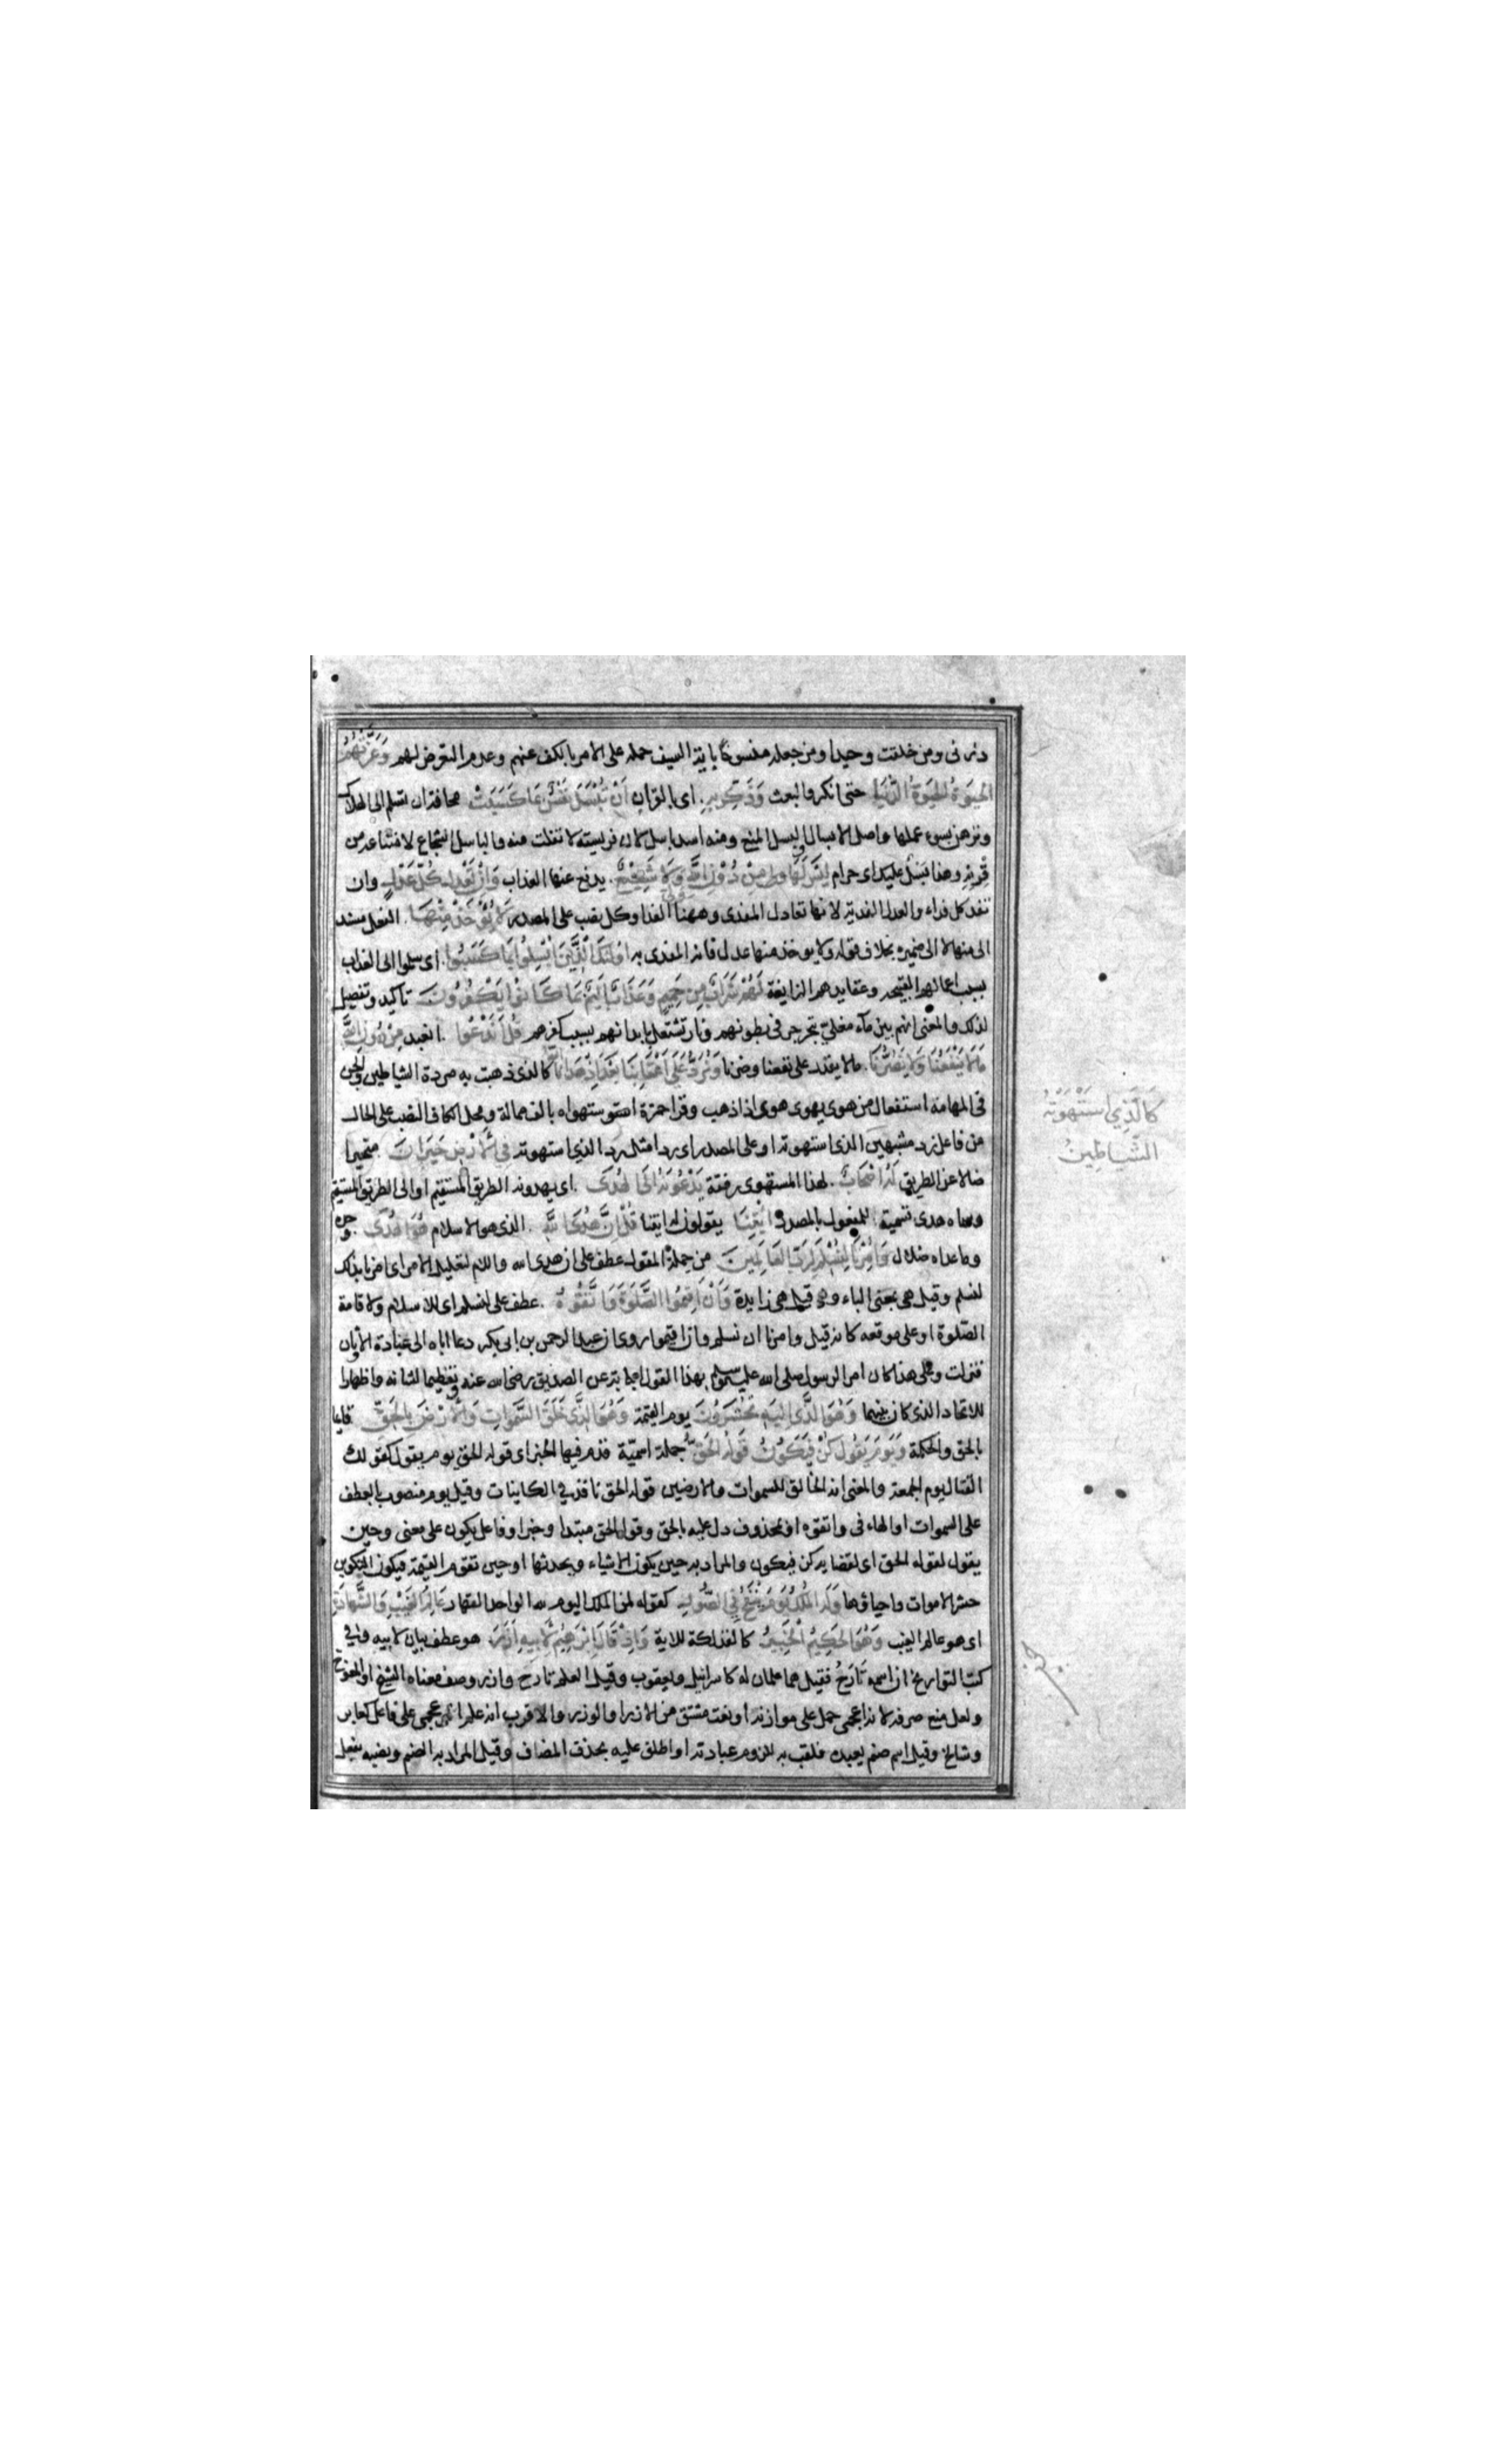 ذرنى ومن خلقت وحيدا ومن جعله منسوخا باية السيف حمله على الامر بالكف عنهم وعدم التعرض لهم وَغَرَّتْهُمُ
الحَيٰوةُ الدُّنْيَا حتى انكروا البعث وَذَكِّرْ بِهِ. اى بالقران اَنْ تُبْسَلَ نَفْسٌ بِمَا كَسَبَتْ مخافة ان تسلم الى الهلاك
وترهن بسوء عملها واصل الابسال والبسل المنع ومنه اسد باسل لان فريسته لا تفلت منه والباسل الشجاع لامتناعه من
قرنه وهذا بسل عليك اى حرام لَيْسَ لَهَا مِنْ دُوْنِ اللّٰهِ وَلِىٌّ وَلَا شَفِيْعٌ. يدفع عنها العذاب وَاِنْ تَعْدِلْ كُلَّ عَدْلٍ وان
تفد كل فداء والعدل الفدية لانها تعادل المفدى وههنا الفدا وكل نصب على المصدر لَا يُؤْخَذْ مِنْهَا. الفعل مسند
الى منها لا الى ضميره بخلاف قوله ولا يوخذ منها عدل فانه المفدى به اُولٰئِكَ الَّذِيْنَ اُبْسِلُوْا بِمَا كَسَبُوْا. اى سلموا الى العذاب
بسبب اعمالهم القبيحه وعقايدهم الزايغة لَهُمْ شَرَابٌ مِنْ حَمِيْمٍ وَعَذَابٌ اَلِيْمٌ بِمَا كَانُوْا يَكْفُرُوْنَ تأكيد وتفصيل
لذلك والمعنى انهم بين مآء مغلي يتجرجر فى بطونهم ونار تشتعل بابدانهم بسبب كفرهم قُلْ اَنَدْعُوْا. انعبد مِنْ دُوْنِ اللّٰهِ
مَا لَا يَنْفَعُنَا وَلَا يَضُرُّنَا. ما لا يقدر على نفعنا وضرنا وَنُرَدُّ عَلٰى اَعْقَابِنَا بَعْدَ اِذْ هَدَانَا اللّٰهُ كالذى ذهبت به مردة الشياطين والجن
فى المهامة استفعال من هوى يهوى هوى اذا ذهب وقرا حمزة استهواه بالف ممالة ومحل الكاف النصب على الحال
كَالَّذِي اسْتَهْوَتْهُ
الشَّيَاطِيْنُ
من فاعل نرد مشبهين الذى استهوته او على المصدر اى ردا مثل رد الذى استهوته فِى الْاَرْضِ حَيْرَانَ متحيرا
ضالا عن الطريق لَهُ اَصْحَابٌ. لهذا المستهوى رفقة يَدْعُوْنَهُ اِلَى الْهُدَى. اى يهدونه الطريق المستقيم او الى الطريق المستقيم
وسماه هدى تسمية للمفعول بالمصدر اِئْتِنَا يقولون له ايتنا قُلْ اِنَّ هُدَى اللّٰهِ. الذى هو الاسلام هُوَ الْهُدَى وحده
وما عداه ضلال وَاُمِرْنَا لِنُسْلِمَ لِرَبِّ الْعَالَمِيْنَ من جملة المقول عطف على ان هدى الله واللام لتعليل الامر اى امرنا بذلك
لنسلم وقيل هى بمعنى الباء وقيل هى زايدة وَاَنْ اَقِيْمُوا الصَّلٰوةَ وَاتَّقُوْهُ. عطف على لنسلم اى للاسلام ولاقامة
الصلوة او على موقعه كانه قيل وامرنا ان نسلم وان اقيموا روى ان عبد الرحمن بن ابى بكر دعا اباه الى عبادة الاوثان
فنزلت وعلى هذا كان امر الرسول صلى الله عليه وسلم بهذا القول اجابة عن الصديق رضى الله عنه تعظيما لشانه واظهارا
للاتحاد الذى كان بينهما وَهُوَ الَّذِى اِلَيْهِ تُحْشَرُوْنَ يوم القيمة وَهُوَ الَّذِى خَلَقَ السَّمٰوَاتِ وَالْاَرْضَ بِالْحَقِّ قايما
بالحق والحكمة وَيَوْمَ يَقُوْلُ كُنْ فَيَكُوْنُ قَوْلُهُ الْحَقُّ جملة اسمية قدم فيها الخبر اى قوله الحق يوم يقول كقولك
القتال يوم الجمعة والمعنى انه الخالق للسموات والارضين قوله الحق نافذ فى الكاينات وقيل يوم منصوب بالعطف
على السموات او الهاء فى واتقوه او بمحذوف دل عليه بالحق وقوله الحق مبتدا وخبر او فاعل يكون على معنى وحين
يقول لقوله الحق اى لقضايه كن فيكون والمراد به حين يكون الاشياء ويحدثها او حين تقوم القيمة فيكون التكوين
حشر الاموات واحياؤها وَلَهُ الْمُلْكُ يَوْمَ يُنْفَخُ فِى الصُّوْرِ كقوله لمن الملك اليوم لله الواحد القهار عَالِمُ الْغَيْبِ وَالشَّهَادَةِ
اى هو عالم الغيب وَهُوَ الْحَكِيْمُ الْخَبِيْرُ كالفذلكة للاية وَاِذْ قَالَ اِبْرٰهِيْمُ لِاَبِيْهِ اٰزَرَ هو عطف بيان لابيه وفى
كتب التواريخ ان اسمه تَارَحُ فقيل هما علمان له كاسرائيل ويعقوب وقيل العلم تارح وازر وصف معناه الشيخ او المعوج
ولعل منع صرفه لانه اعجمى حمل على موازنه او نعت مشتق من الازر او الوزر والاقرب انه علم اعجمى على فاعل كعابر
وشالخ وقيل اسم صنم يعبده فلقب به للزوم عبادته او اطلق عليه بحذف المضاف وقيل المراد به الصنم ونصبه بفعل